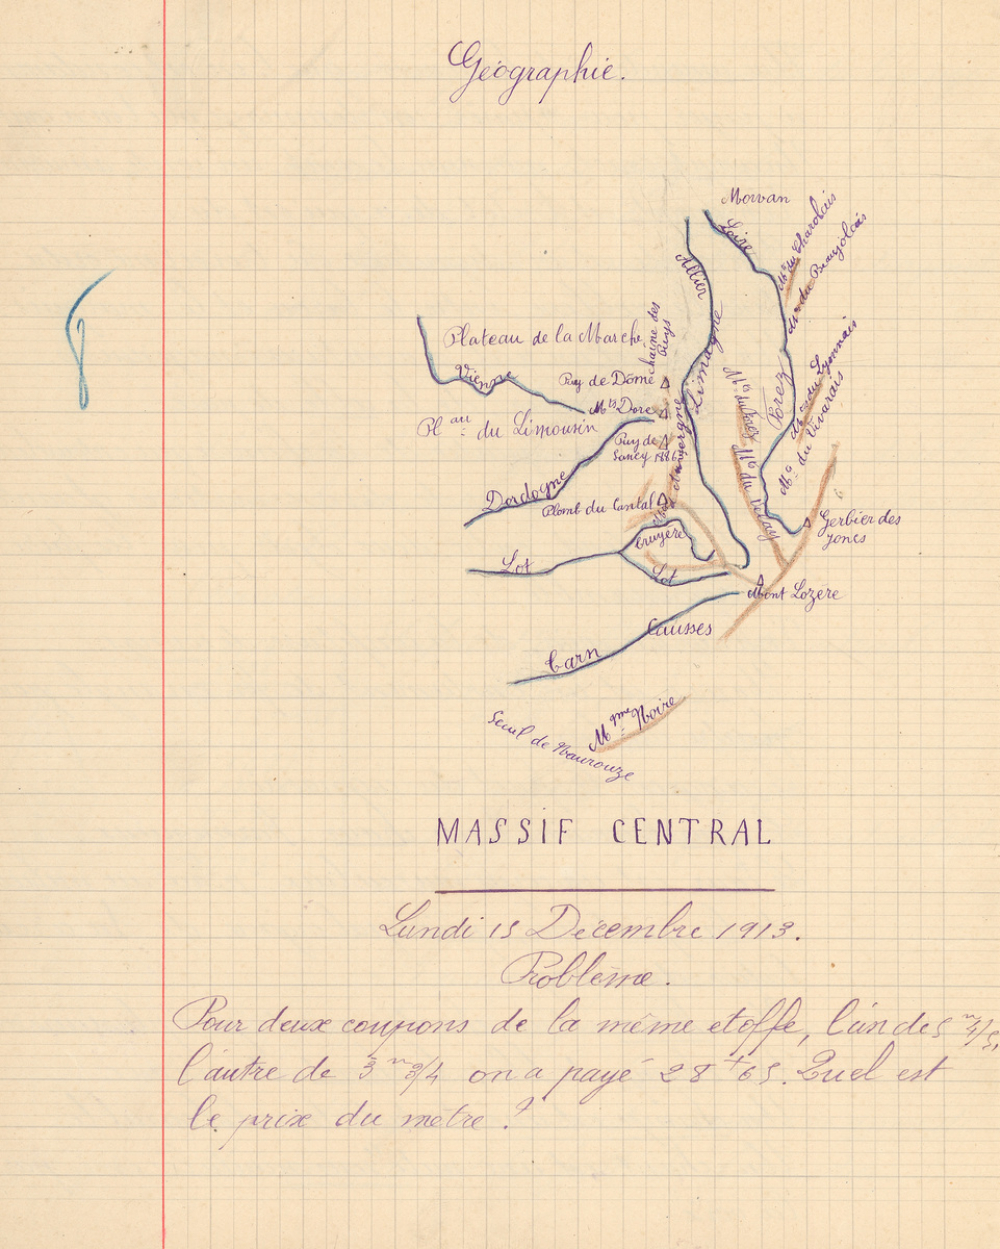 Géographie.
Morvan
Loire
Mts du Charolais
Mts du Beaujolais
Allier
Chaîne des
Puys
Plateau de la Marche
Limagne
Mts du Lyonnais
Vienne
Puy de Dôme
Mts du Forez
Forez
Mts Dore
Pl au du Limousin
Mts d'Auvergne
Mts du Vivarais
Puy de
Sancy 1886
Mts du Velay
Dordogne
Plomb du Cantal
Gerbier des
Joncs
Truyère
Lot
Lot
Mont Lozère
Causses
Tarn
Mgne Noire
Seuil de Naurouze
MASSIF CENTRAL
Lundi 15 Décembre 1913.
Problème.
Pour deux coupons de la même etoffe, l'un de 5 m 4/5,
l'autre de 3 m 3/4 on a payé 28 f 65. Quel est
le prix du mètre ?
8